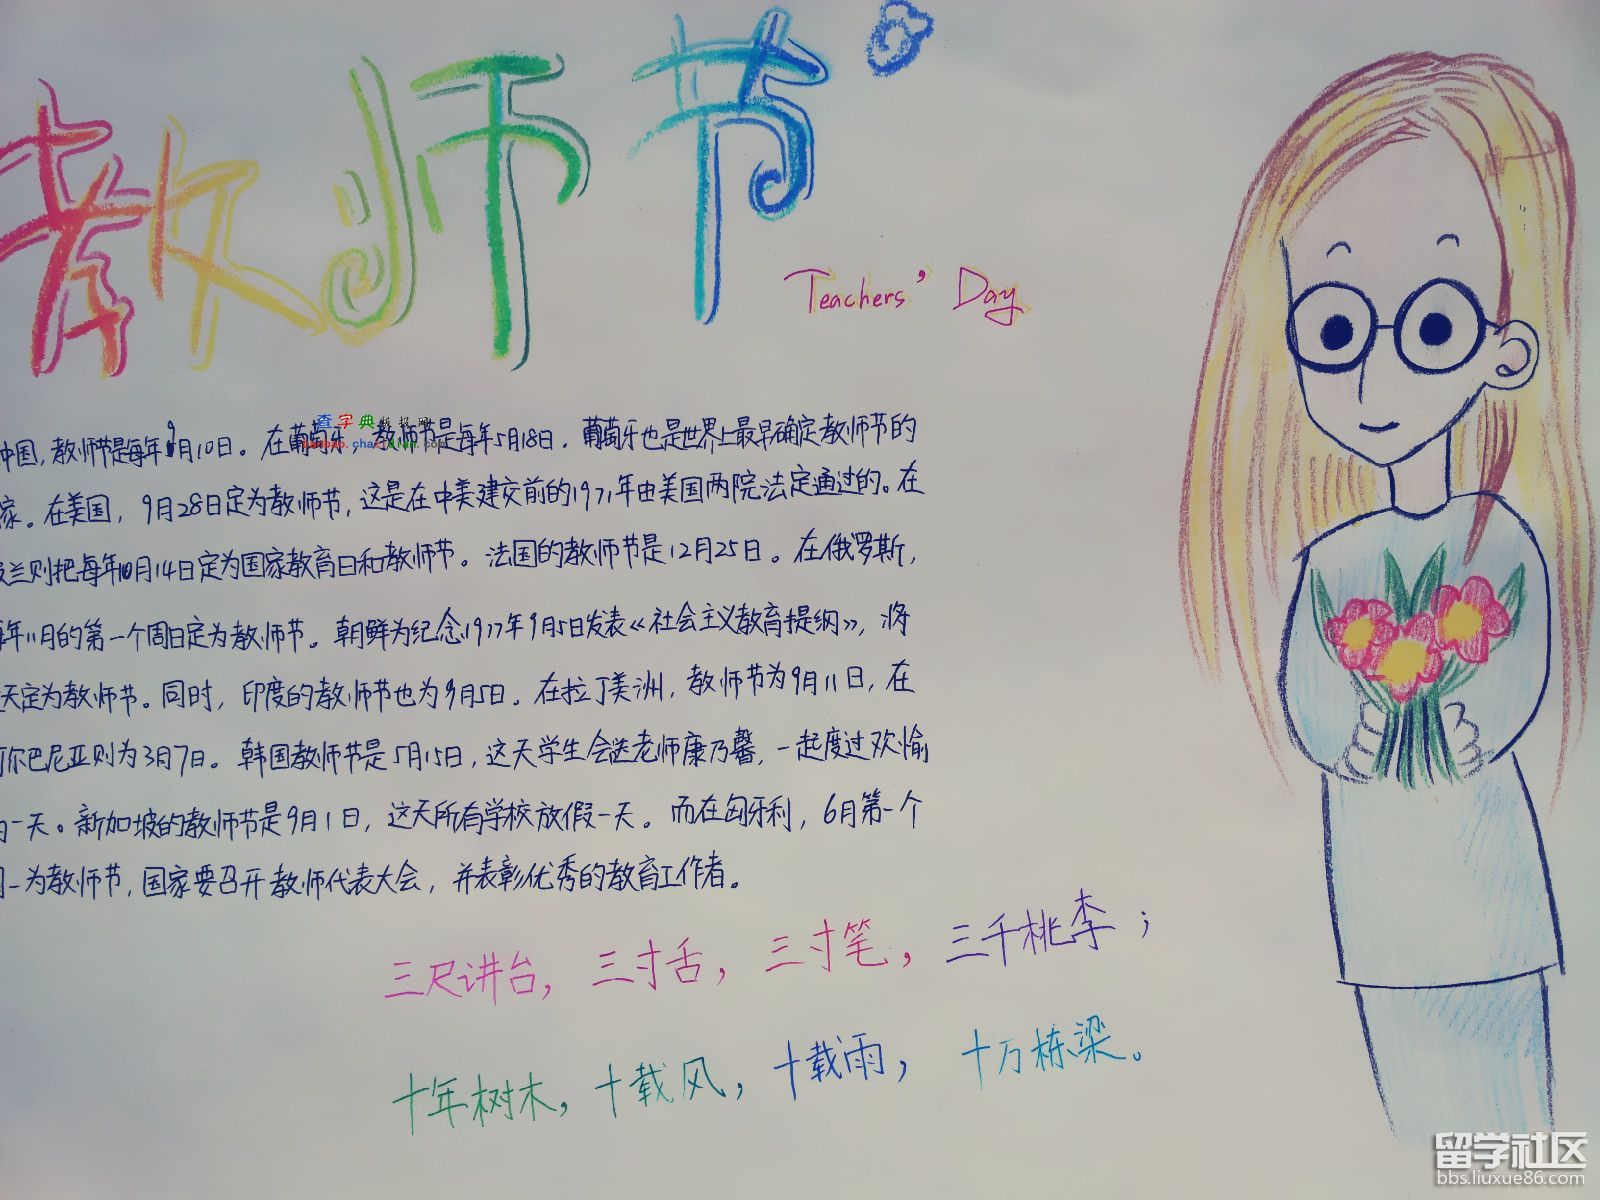 教师节
Teachers' Day
查字典手抄报网
中国，教师节是每年9月10日。在葡萄牙，教师节是每年5月18日．葡萄牙也是世界上最早确定教师节的
家。在美国，9月28日定为教师节，这是在中美建交前的1971年由美国两院法定通过的。在
兰则把每年10月14日定为国家教育日和教师节。法国的教师节是12月25日。在俄罗斯，
年11月的第一个周日定为教师节。朝鲜为纪念1977年9月5日发表《社会主义教育提纲》，将
天定为教师节。同时，印度的教师节也为9月5日。在拉丁美洲，教师节为9月11日，在
尔巴尼亚则为3月7日。韩国教师节是5月15日，这天学生会送老师康乃馨，一起度过欢愉
一天。新加坡的教师节是9月1日，这天所有学校放假一天。而在匈牙利，6月第一个
一为教师节，国家要召开教师代表大会，并表彰优秀的教育工作者。
三尺讲台，三寸舌，三寸笔，三千桃李；
十年树木，十载风，十载雨，十万栋梁。
留学社区
bbs.liuxue86.com